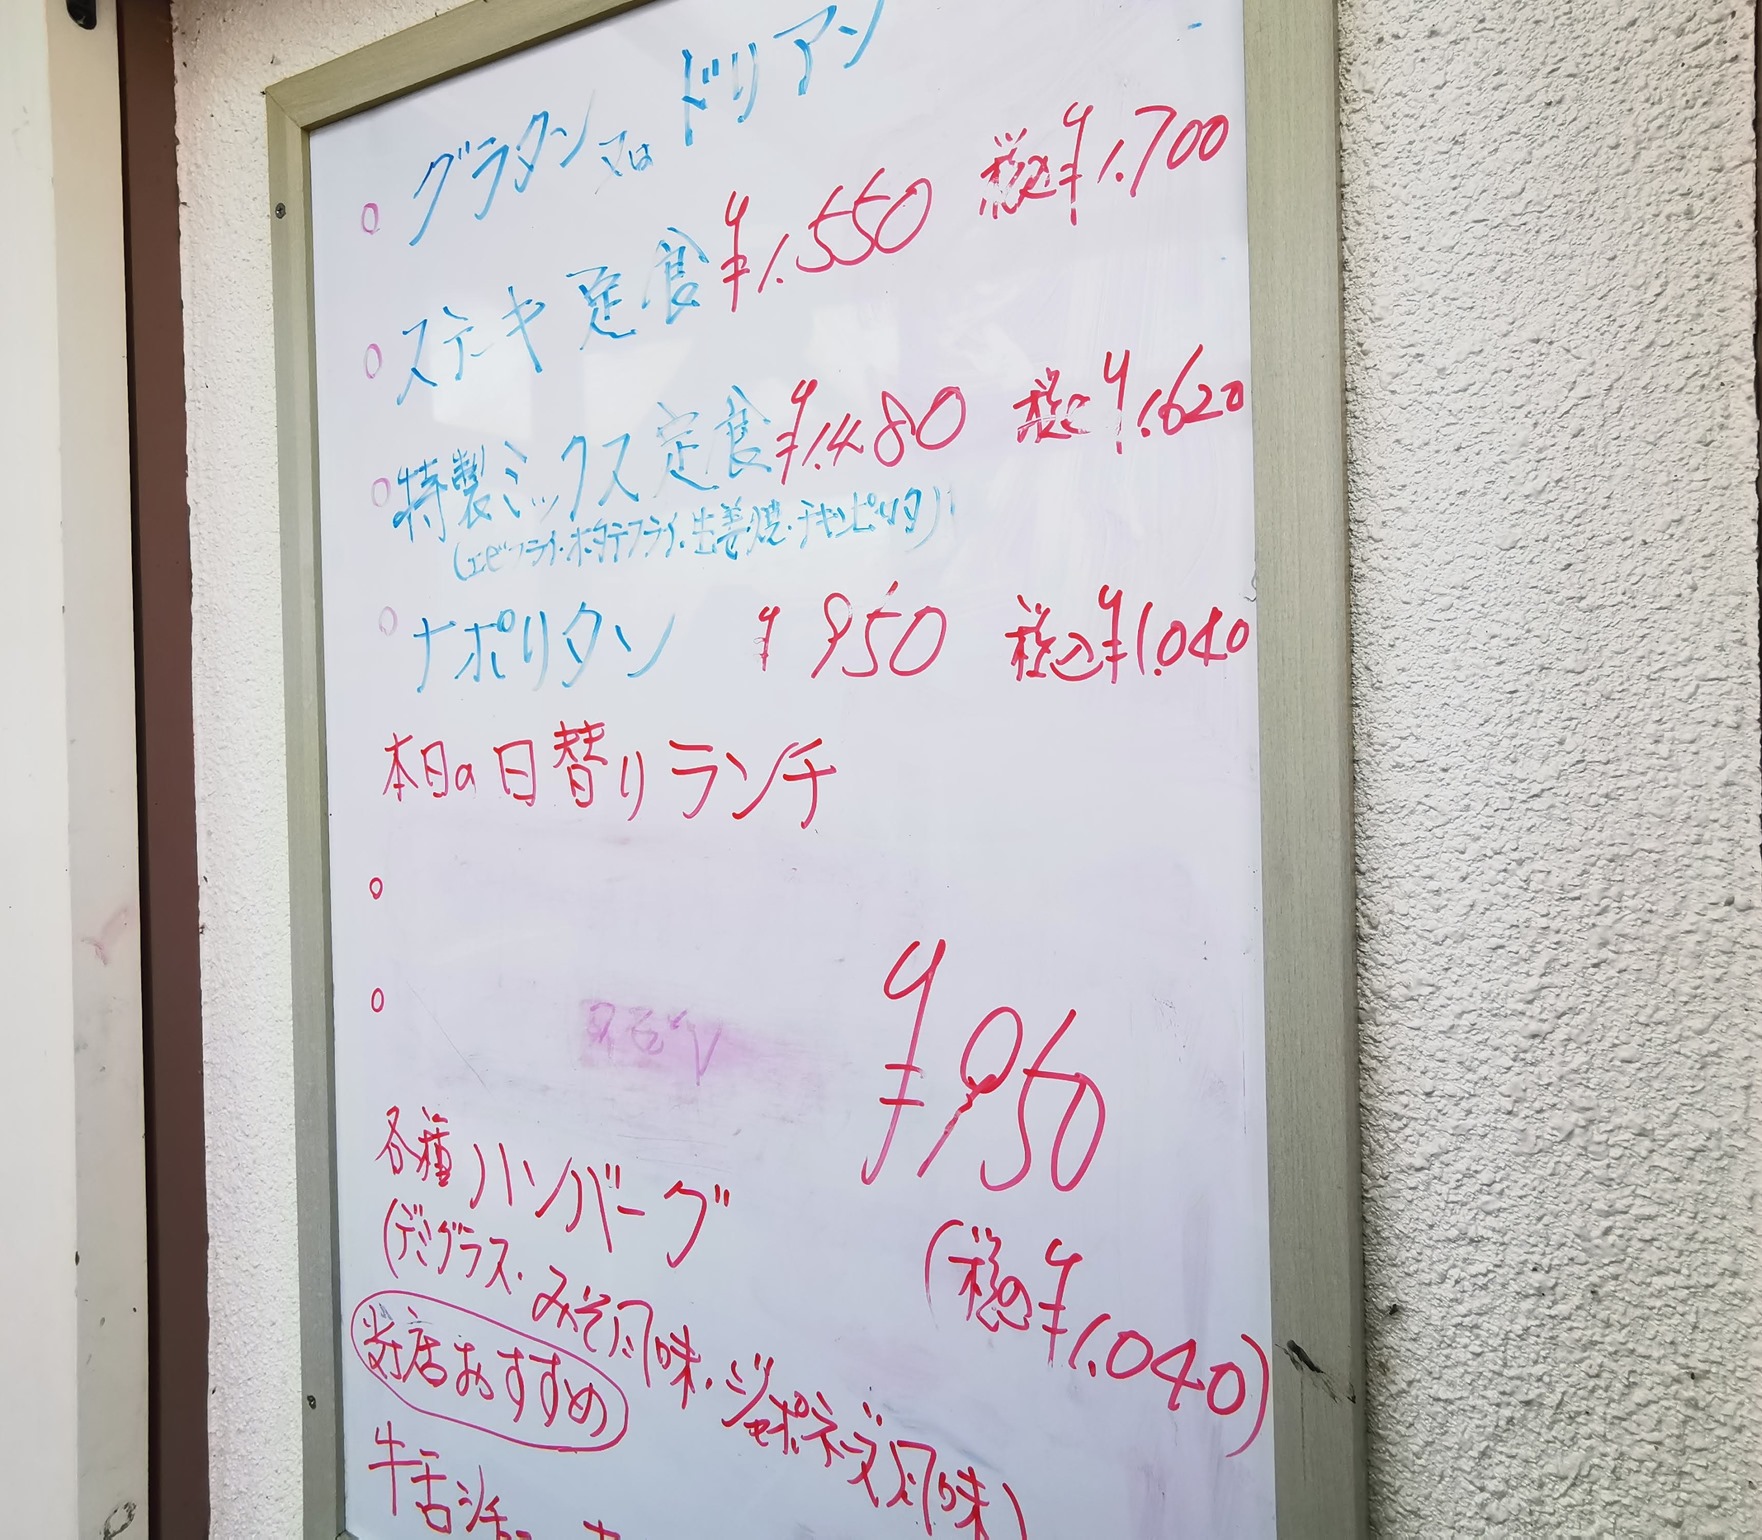 ○ グラタン又は ドリアン
○ ステーキ定食 ¥1.550 税込¥1.700
○ 特製ミックス定食 ¥1.480 税込¥1.620
(エビフライ・ホタテフライ・生姜焼・チキンピリタ)
○ ナポリタン ¥950 税込¥1.040
本日の日替りランチ
○
○
¥950
(税込¥1.040)
各種ハンバーグ
(デミグラス・みそ風味・ジャポネーズ風味)
当店おすすめ
牛舌シチュー